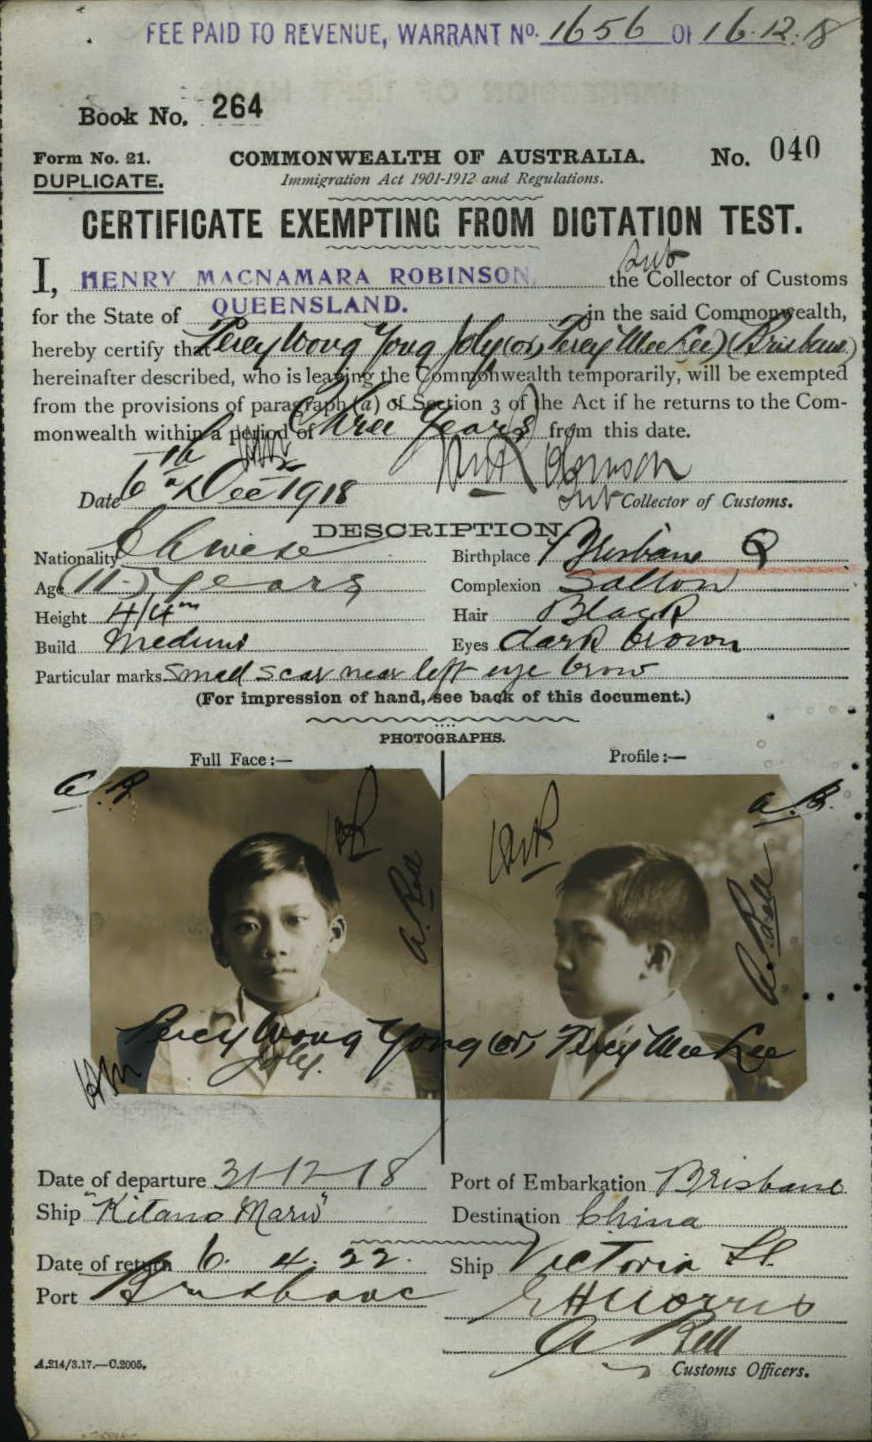 FEE PAID TO REVENUE, WARRANT No. 1656 OF 16.12.18
Book No. 264
Form No. 21. COMMONWEALTH OF AUSTRALIA. No. 040
DUPLICATE. Immigration Act 1901-1912 and Regulations.
CERTIFICATE EXEMPTING FROM DICTATION TEST.
Sub
I, HENRY MACNAMARA ROBINSON, the Collector of Customs
for the State of QUEENSLAND. in the said Commonwealth,
hereby certify that Percy Wong Yong Joly (or, Percy Mee Lee) (Brisbane)
hereinafter described, who is leaving the Commonwealth temporarily, will be exempted
from the provisions of paragraph (a) of Section 3 of the Act if he returns to the Com-
monwealth within a period of (Three Years) from this date.
HMR
HMRobinson
Date 6th Dec 1918 Sub Collector of Customs.
DESCRIPTION
Nationality Chinese Birthplace Brisbane Q
Age (11) years Complexion Sallow
Height 4/4 Hair Black
Build Medium Eyes dark brown
Particular marks Small scar near left eye brow
(For impression of hand, see back of this document.)
PHOTOGRAPHS.
Full Face:— Profile:—
HMR A. Bell
HMR A. Bell
Percy Wong Yong (or, Percy Mee Lee
Joly.
Date of departure 31-12-18 Port of Embarkation Brisbane
Ship "Kitano Maru" Destination China
Date of return 6. 4. 22. Ship Victoria
Port Brisbane EHMorris
A Bell
A.214/3.17.—C.2005. Customs Officers.